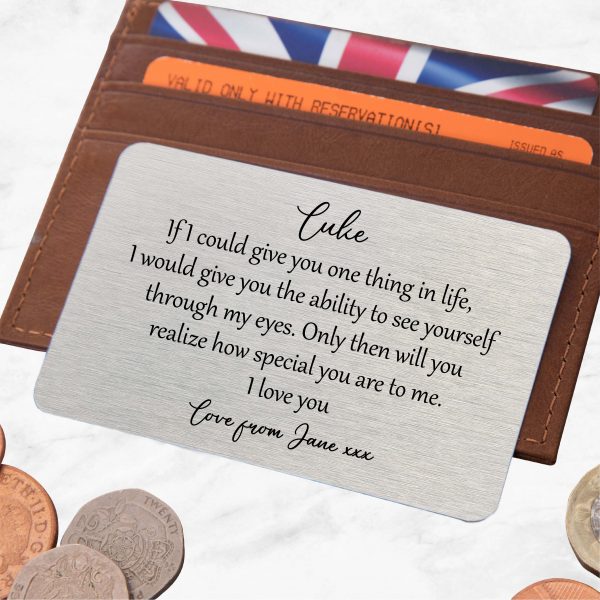 VALID ONLY WITH RESERVATION[S]
ISSUED AS
Luke
If I could give you one thing in life,
I would give you the ability to see yourself
through my eyes. Only then will you
realize how special you are to me.
I love you
Love from Jane xxx
TWEN